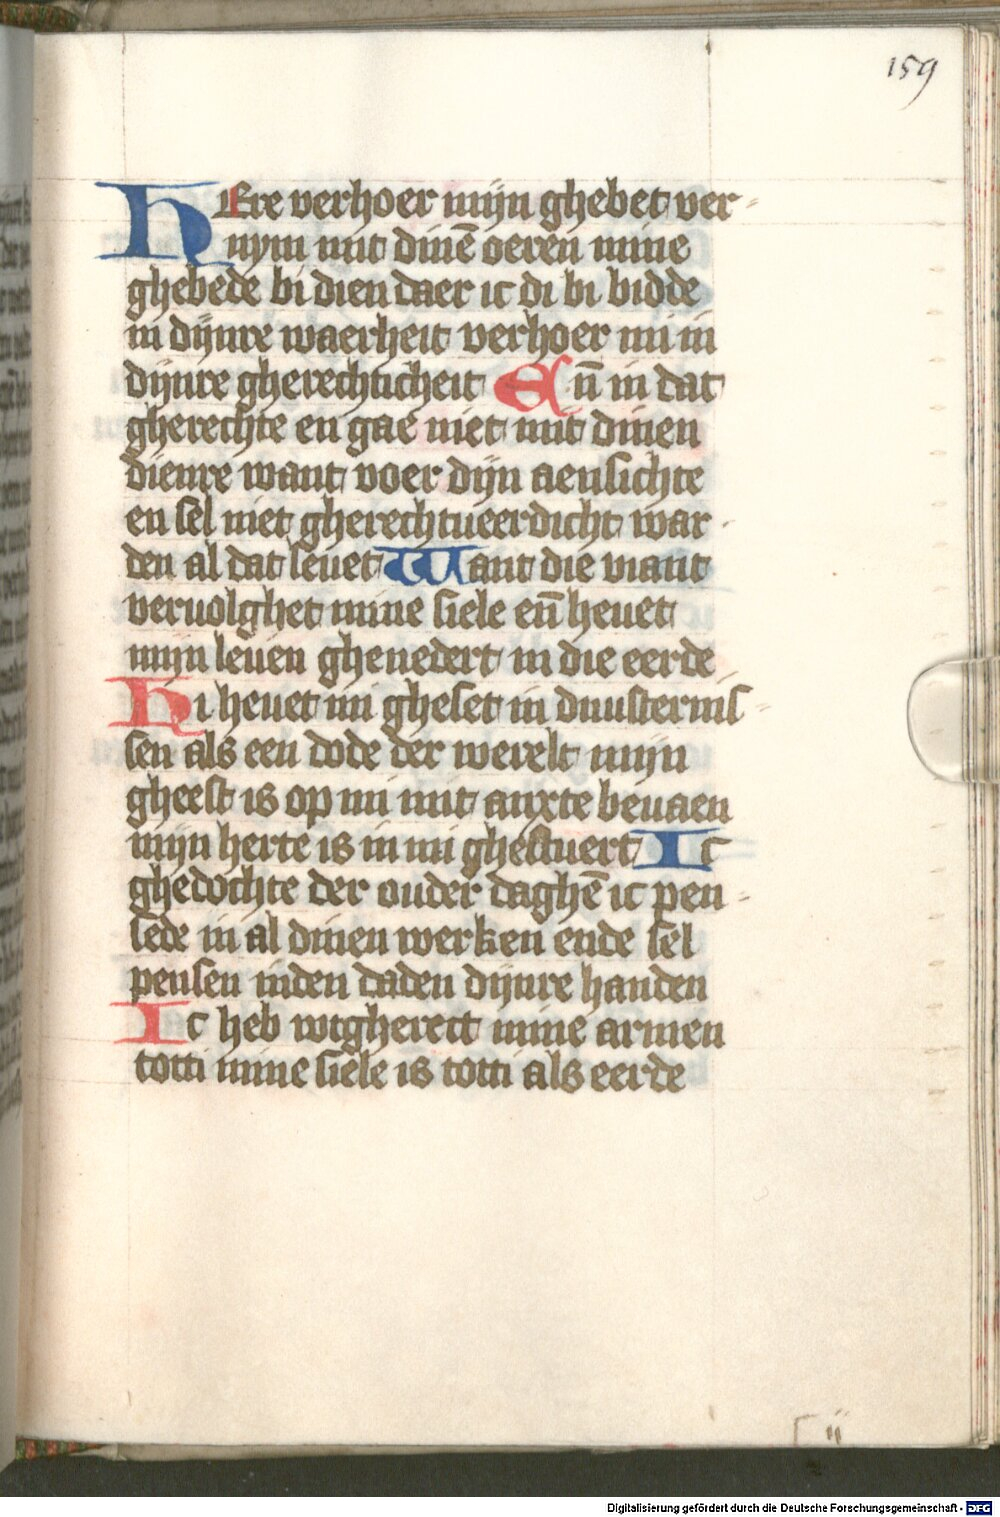 159
HEre verhoer mijn ghebet ver⸗
nym mit dinē oeren mine
ghebede bi dien daer ic di bi bidde
in dijnre waerheit verhoer mi in
dijnre gherechticheit Eñ in dat
gherechte en gae niet mit dinen
dienre want voer dijn aensichte
en sel niet gherechtueerdicht war⸗
den al dat leuet Want die viant
veruolghet mine siele eñ heuet
mijn leuen ghenedert in die eerde
Hi heuet mi gheset in duusternis⸗
sen als een dode der werelt mijn
gheest is op mi mit anxte beuaen
mijn herte is in mi ghestuert Ic
ghedochte der ouder daghē ic pen⸗
sede in al dinen werken ende sel
pensen inden daden dijnre handen
Ic heb wtgherect mine armen
totti mine siele is totti als eerde
ij
Digitalisierung gefördert durch die Deutsche Forschungsgemeinschaft - DFG